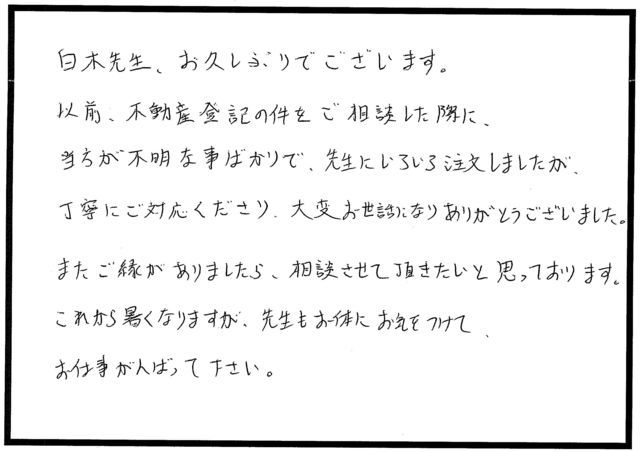 白木先生、お久しぶりでございます。
以前、不動産登記の件をご相談した際に、
当方が不明な事ばかりで、先生にいろいろ注文しましたが、
丁寧にご対応くださり、大変お世話になりありがとうございました。
またご縁がありましたら、相談させて頂きたいと思っております。
これから暑くなりますが、先生もお体にお気をつけて、
お仕事がんばって下さい。